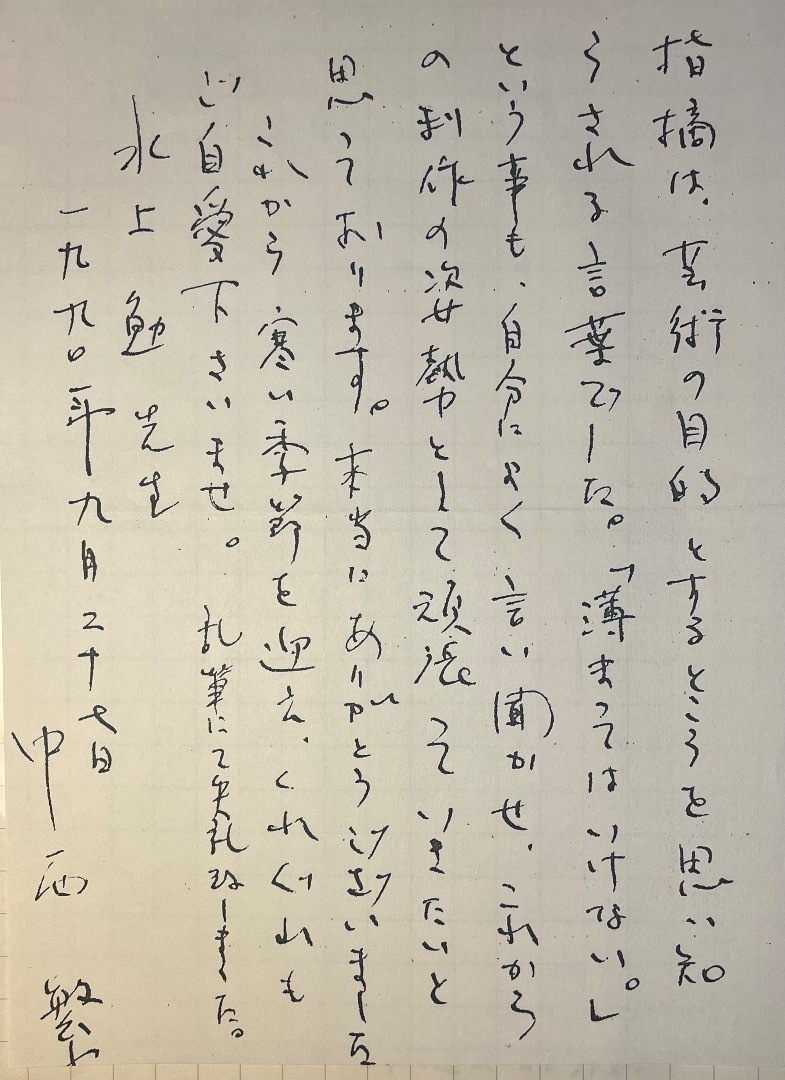 指摘は、芸術の目的とするところを思い知
らされる言葉でした。「薄まってはいけない。」
という事も、自分によく言い聞かせ、これから
の制作の姿勢として頑張っていきたいと
思っております。本当にありがとうございました
これから寒い季節を迎え、くれぐれも
ご自愛下さいませ。乱筆にて失礼致しました。
水上勉先生
一九九〇年九月二十七日
中西 繁